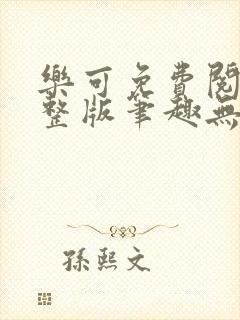 樂可免費閱
整版筆趣無
孫熙文